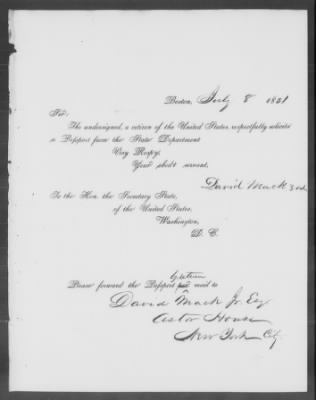 Boston, July 8 1851
Sir:
The undersigned, a citizen of the United States, respectfully solicits
a Passport from the State Department
Very Respy,
Your obedt servant,
David Mack 3rd
To the Hon. the Secretary State,
of the United States,
Washington,
D. C.
by return
Please forward the Passport mail to
David Mack Jr. Esq
Astor House
New York City